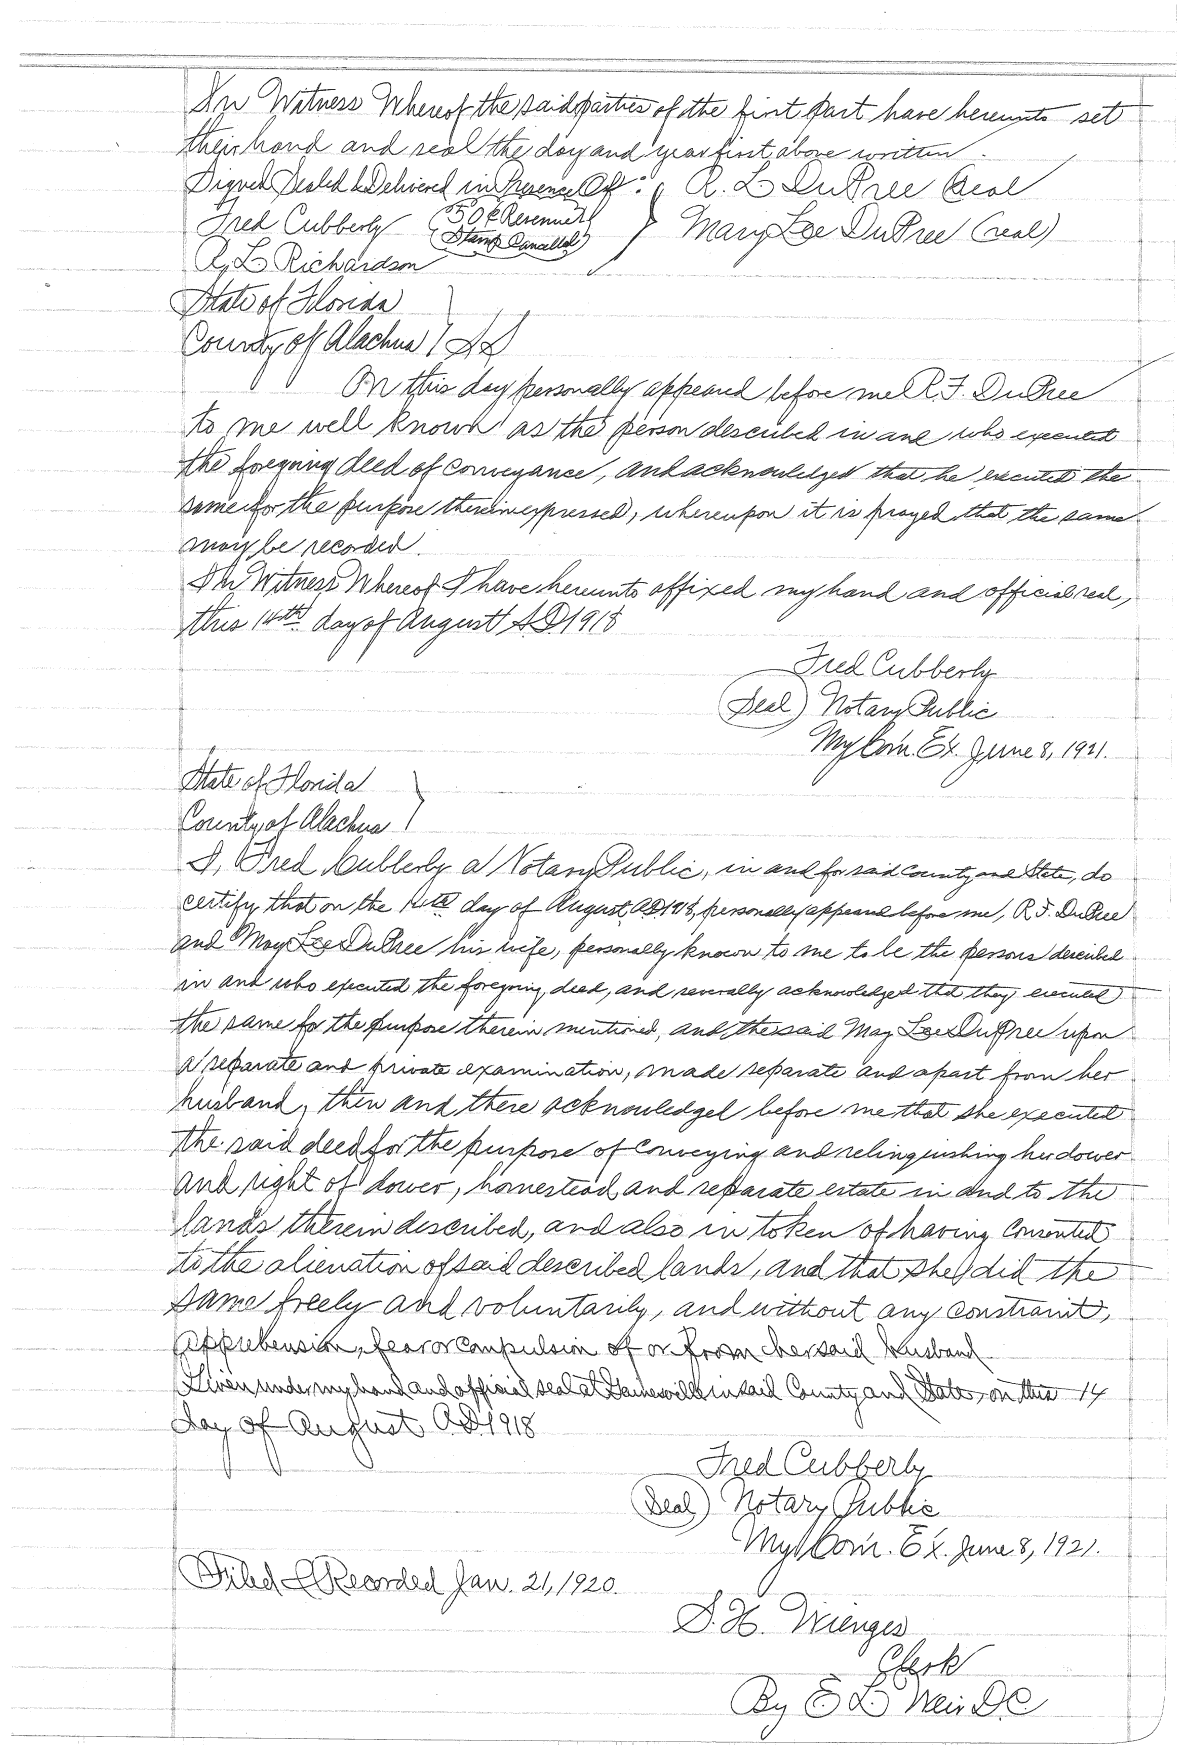 In Witness Whereof the said parties of the first part have hereunto set
their hand and seal the day and year first above written.
Signed Sealed & Delivered in Presence Of: R. L DuPree (Seal
Fred Cubberly (50¢ Revenue Stamp Cancelled) Mary Lee DuPree (seal)
R, L Richardson
State of Florida
County of Alachua SS
On this day personally appeared before me R. F. DuPree
to me well known as the person described in and who executed
the foregoing deed of conveyance, and acknowledged that he executed the
same for the purpose therein expressed, whereupon it is prayed that the same
may be recorded.
In Witness Whereof I have hereunto affixed my hand and official seal,
this 14th day of August AD 1918
Fred Cubberly
(Seal) Notary Public
My Com. Ex. June 8, 1921.
State of Florida
County of Alachua
I, Fred Cubberly a Notary Public, in and for said County and State, do
certify that on the 14th day of August AD 1918, personally appeared before me, R. F. DuPree
and May Lee DuPree his wife, personally known to me to be the persons described
in and who executed the foregoing deed, and severally acknowledged that they executed
the same for the purpose therein mentioned, and the said May Lee DuPree upon
a separate and private examination, made separate and apart from her
husband, then and there acknowledged before me that she executed
the said deed for the purpose of conveying and relinquishing her dower
and right of dower, homestead and separate estate in and to the
lands therein described, and also in token of having consented
to the alienation of said described lands, and that she did the
same freely and voluntarily, and without any constraint,
apprehension, fear or compulsion of or from her said husband
Given under my hand and official seal at Gainesville in said County and State, on this 14
day of August AD 1918
Fred Cubberly
(Seal) Notary Public
My Com. Ex. June 8, 1921.
Filed & Recorded Jan. 21, 1920.
S. H. Wienges
Clerk
By E L Weir DC